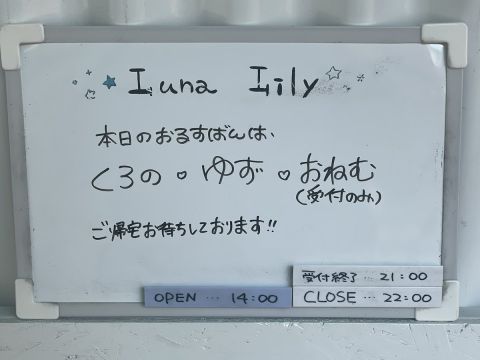 Luna Lily
本日のおるすばんは、
くろの・ゆず・おねむ
(受付のみ)
ご帰宅お待ちしております!!
受付終了… 21:00
OPEN … 14:00
CLOSE … 22:00